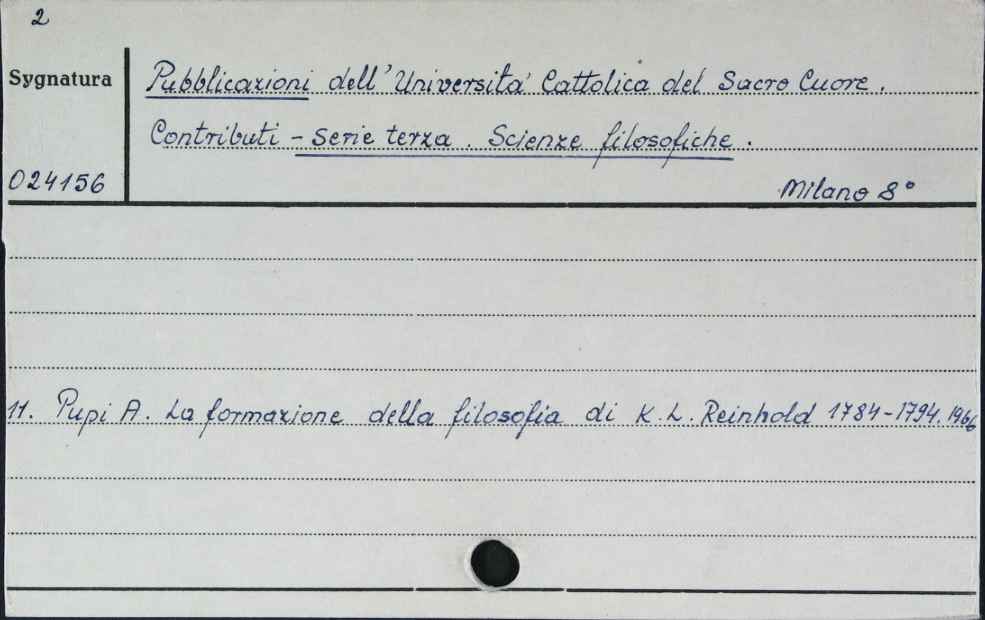 2
Sygnatura
Pubblicazioni dell' Universita' Cattolica del Sacro Cuore.
Contributi - Serie terza. Scienze filosofiche.
024156
Milano 8°
11. Pupi A. La formazione della filosofia di K. L. Reinhold 1784-1794. 1966